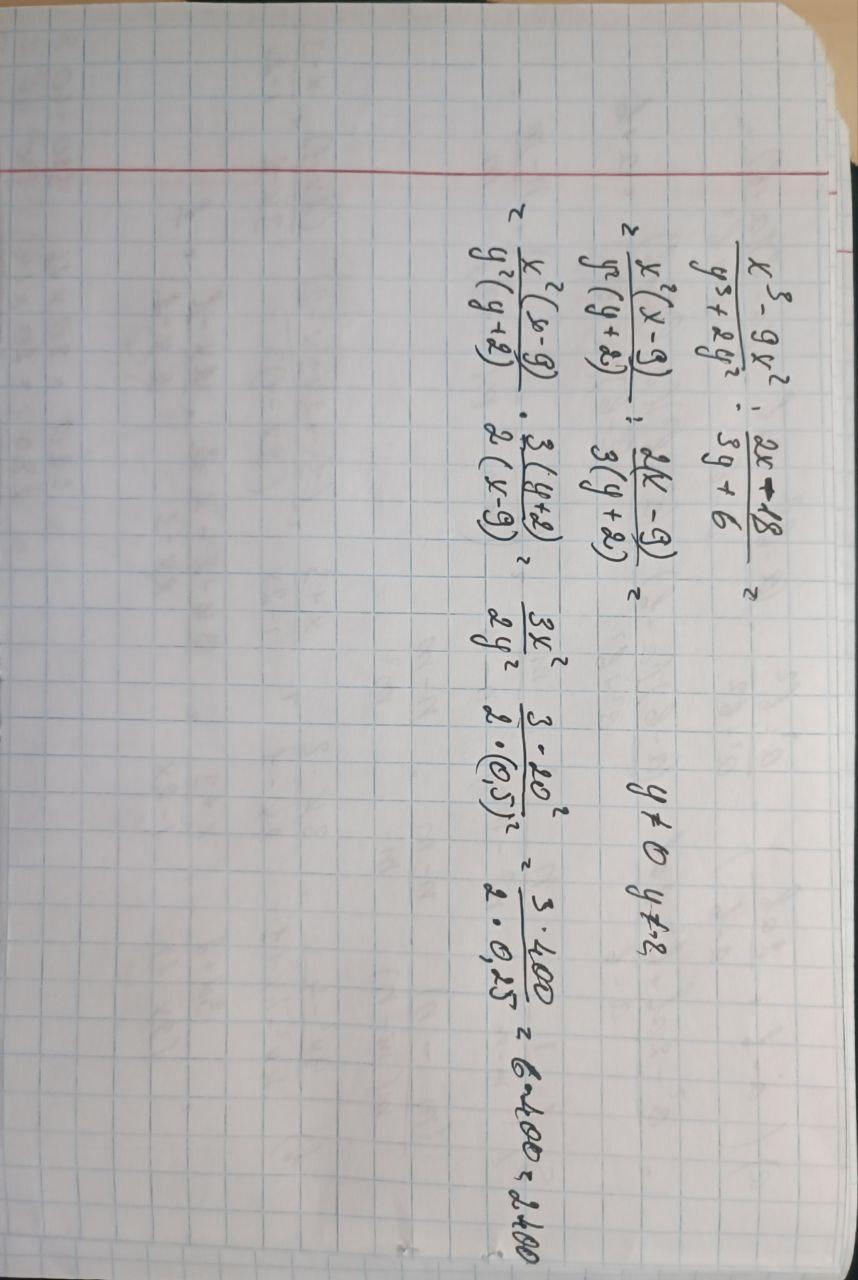 (x³ - 9x²)/(y³ + 2y²) : (2x - 18)/(3y + 6) =
= (x²(x - 9))/(y²(y + 2)) : (2(x - 9))/(3(y + 2)) = y ≠ 0 y ≠ -2
= (x²(x - 9))/(y²(y + 2)) · (3(y + 2))/(2(x - 9)) = (3x²)/(2y²) (3 · 20²)/(2 · (0,5)²) = (3 · 400)/(2 · 0,25) = 6 · 400 = 2400